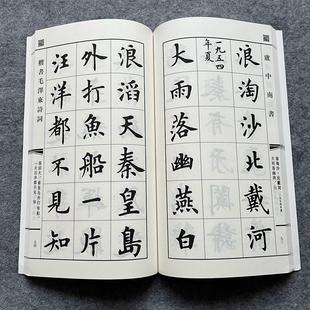 盧中南書
浪淘沙北戴河
一九五四
年夏
大雨落幽燕白
浪滔天秦皇島
外打魚船一片
汪洋都不見知
楷書毛澤東詩詞